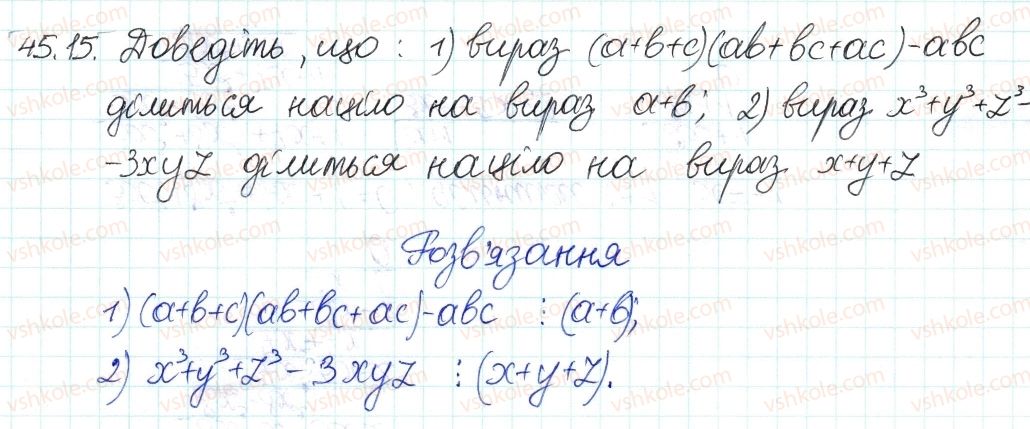 45.15. Доведіть, що: 1) вираз (a+b+c)(ab+bc+ac)-abc
ділиться націло на вираз a+b; 2) вираз x³+y³+z³-
-3xyz ділиться націло на вираз x+y+z
Розв'язання
1) (a+b+c)(ab+bc+ac)-abc ⋮ (a+b);
2) x³+y³+z³-3xyz ⋮ (x+y+z).